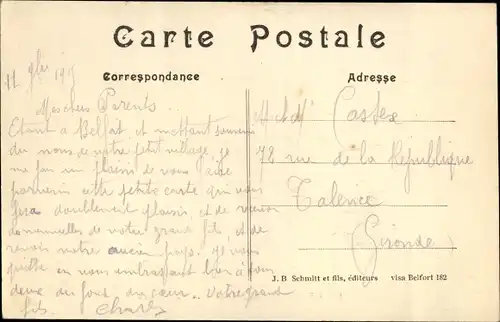 Carte Postale
Correspondance
Adresse
11 9bre 191
Mes chers Parents.
Etant à Belfort, et mettant souvenir
du nous, de notre petit village, je
me fais un plaisir de vous faire
parvenir cette petite carte qui vous
fera doublement plaisir, et de recevoir
de nouvelles de votre grand fils, et de
revoir notre ancien pays. Je vous
quitte en vous embrassant bien à vous
deux du fond du cœur. Votre grand
fils. Charles
M et Me Castex
72 rue de la République
Talence
Gironde
J. B Schmitt et fils, éditeurs visa Belfort 182